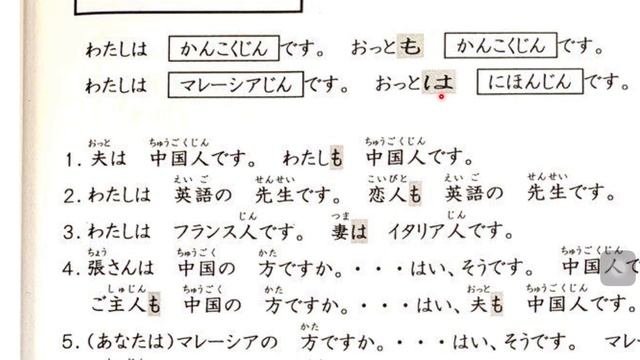 わたしは かんこくじん です。 おっとも かんこくじん です。
わたしは マレーシアじん です。 おっとは にほんじん です。
おっと ちゅうごくじん ちゅうごくじん
1. 夫は 中国人です。 わたしも 中国人です。
えいご せんせい こいびと えいご せんせい
2. わたしは 英語の 先生です。 恋人も 英語の 先生です。
じん つま じん
3. わたしは フランス人です。 妻は イタリア人です。
ちょう ちゅうごく かた ちゅうごくじん
4. 張さんは 中国の 方ですか。・・・はい、そうです。 中国人で
しゅじん ちゅうごく かた おっと ちゅうごくじん
ご主人も 中国の 方ですか。・・・はい、夫も 中国人です。
かた
5. (あなたは)マレーシアの 方ですか。・・・はい、そうです。 マレ